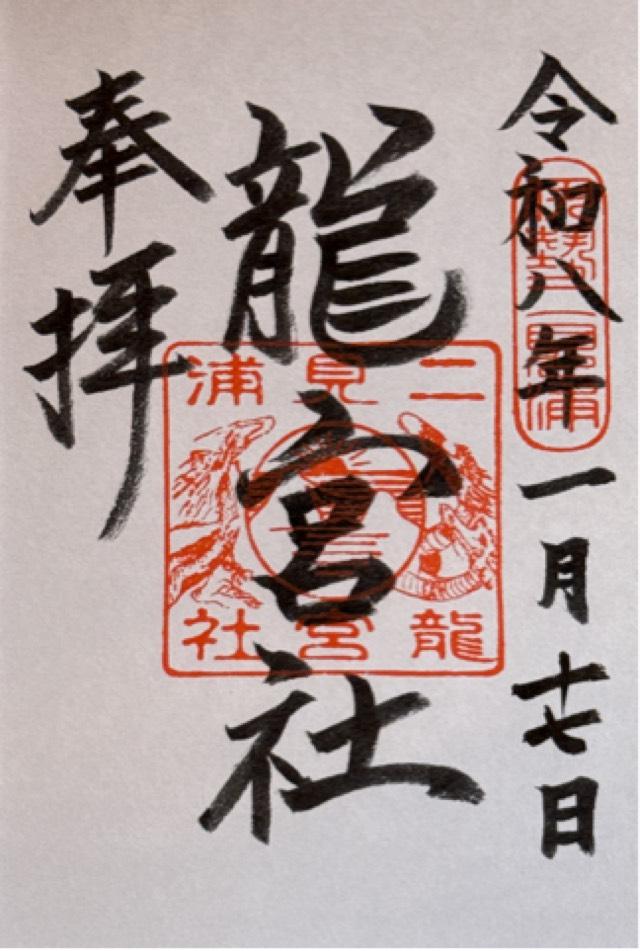 令和八年一月十七日
伊勢二見浦
龍宮社
二見浦
龍宮社
奉拝